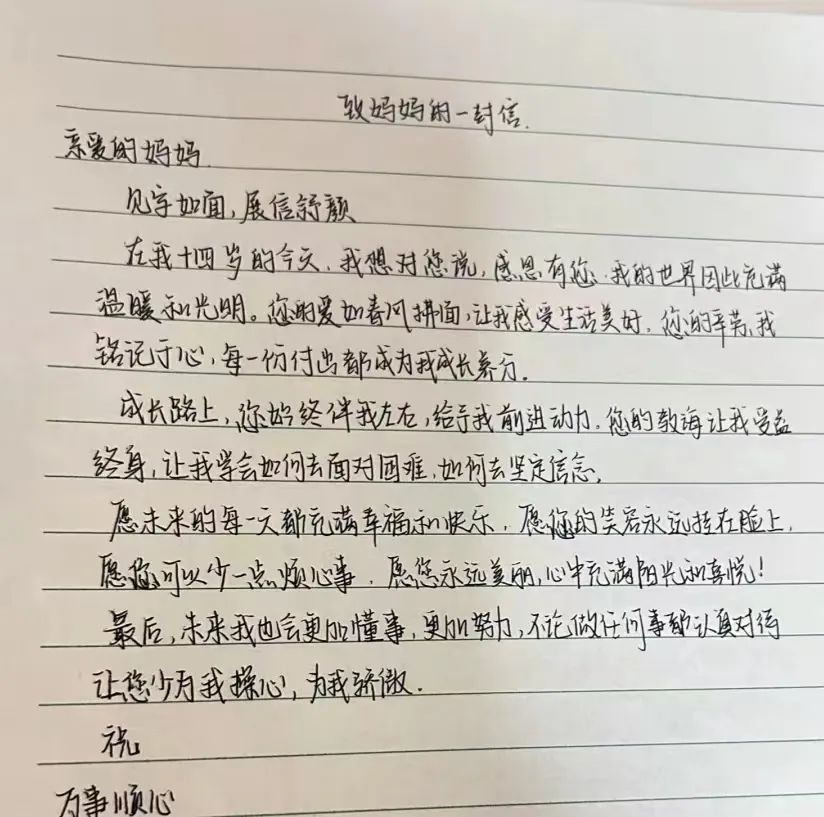 致妈妈的一封信.
亲爱的妈妈
见字如面,展信舒颜
在我十四岁的今天,我想对您说,感恩有您.我的世界因此充满
温暖和光明。您的爱如春风拂面,让我感受生活美好.您的辛劳,我
铭记于心,每一份付出都成为我成长养分.
成长路上,您始终伴我左右,给予我前进动力.您的教诲让我受益
终身,让我学会如何去面对困难,如何去坚定信念.
愿未来的每一天都充满幸福和快乐.愿您的笑容永远挂在脸上.
愿您可以少一点烦心事.愿您永远美丽,心中充满阳光和喜悦!
最后,未来我也会更加懂事,更加努力,不论做任何事都认真对待
让您少为我操心,为我骄傲.
祝
万事顺心